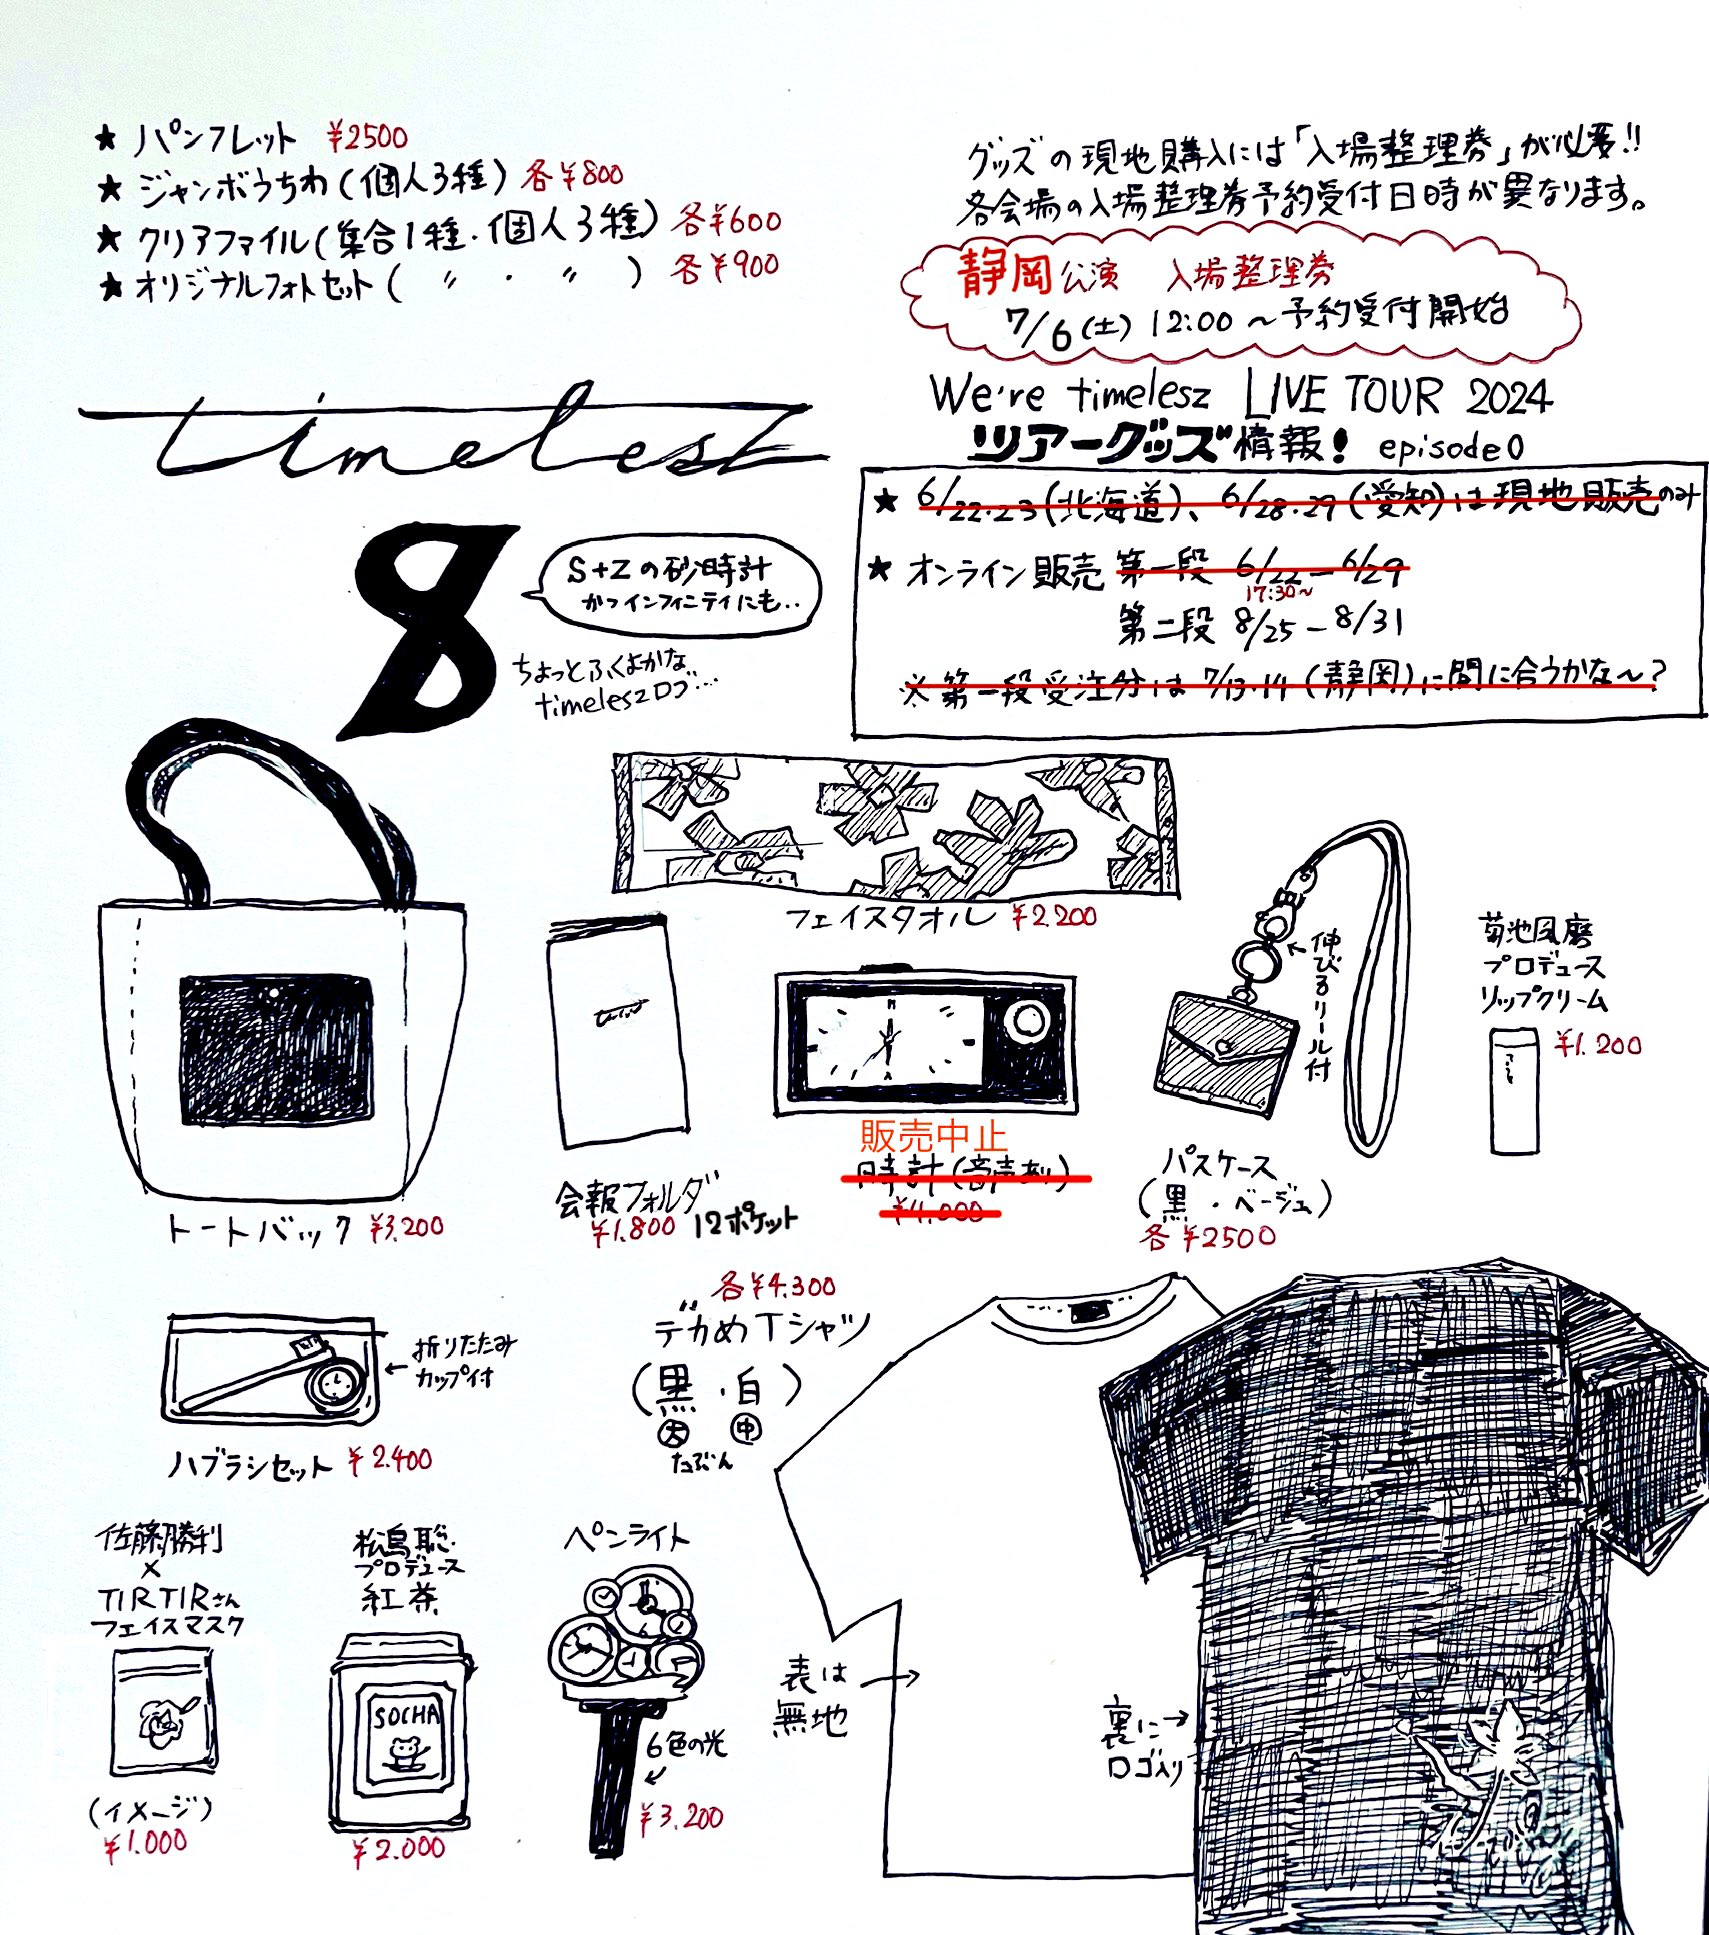 ★ パンフレット ¥2500
★ ジャンボうちわ(個人3種) 各¥800
★ クリアファイル(集合1種・個人3種) 各¥600
★ オリジナルフォトセット( 〃 ・ 〃 ) 各¥900
グッズの現地購入には「入場整理券」が必要!!
各会場の入場整理券予約受付日時が異なります。
静岡公演 入場整理券
7/6(土) 12:00〜予約受付開始
We're timelesz LIVE TOUR 2024
ツアーグッズ情報! episode0
timelesz
★ 6/22・23(北海道)、6/28・29(愛知)は現地販売のみ
★ オンライン販売 第一段 6/22–6/29
17:30〜
第二段 8/25–8/31
※第一段受注分は7/13・14(静岡)に間に合うかな〜?
S+Zの砂時計
かつインフィニティにも..
ちょっとふくよかな
timeleszロゴ…
フェイスタオル ¥2.200
トートバック ¥3.200
会報フォルダ
¥1.800 12ポケット
販売中止
時計(音声あり)
¥4.000
伸びるリール付
パスケース
(黒・ベージュ)
各¥2500
菊池風磨
プロデュース
リップクリーム
¥1.200
折りたたみ
カップ付
ハブラシセット ¥2.400
各¥4.300
デカめTシャツ
(黒・白)
大 中
たぶん
表は
無地
裏に
ロゴ入り
佐藤勝利
×
TIRTIRさん
フェイスマスク
(イメージ)
¥1.000
松島聡
プロデュース
紅茶
SOCHA
¥2.000
ペンライト
6色の光
¥3.200